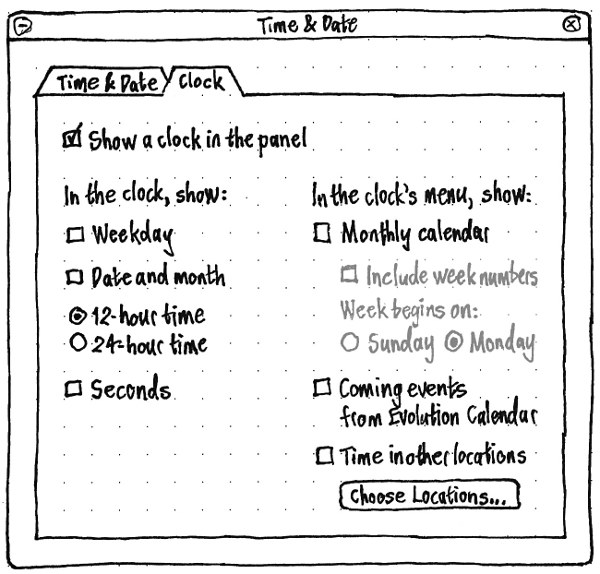 Time & Date
Time & Date
Clock
Show a clock in the panel
In the clock, show:
Weekday
Date and month
12-hour time
24-hour time
Seconds
In the clock's menu, show:
Monthly calendar
Include week numbers
Week begins on:
Sunday Monday
Coming events
from Evolution Calendar
Time in other locations
Choose Locations...